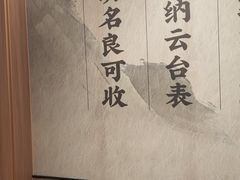 纳云台表
名良可收